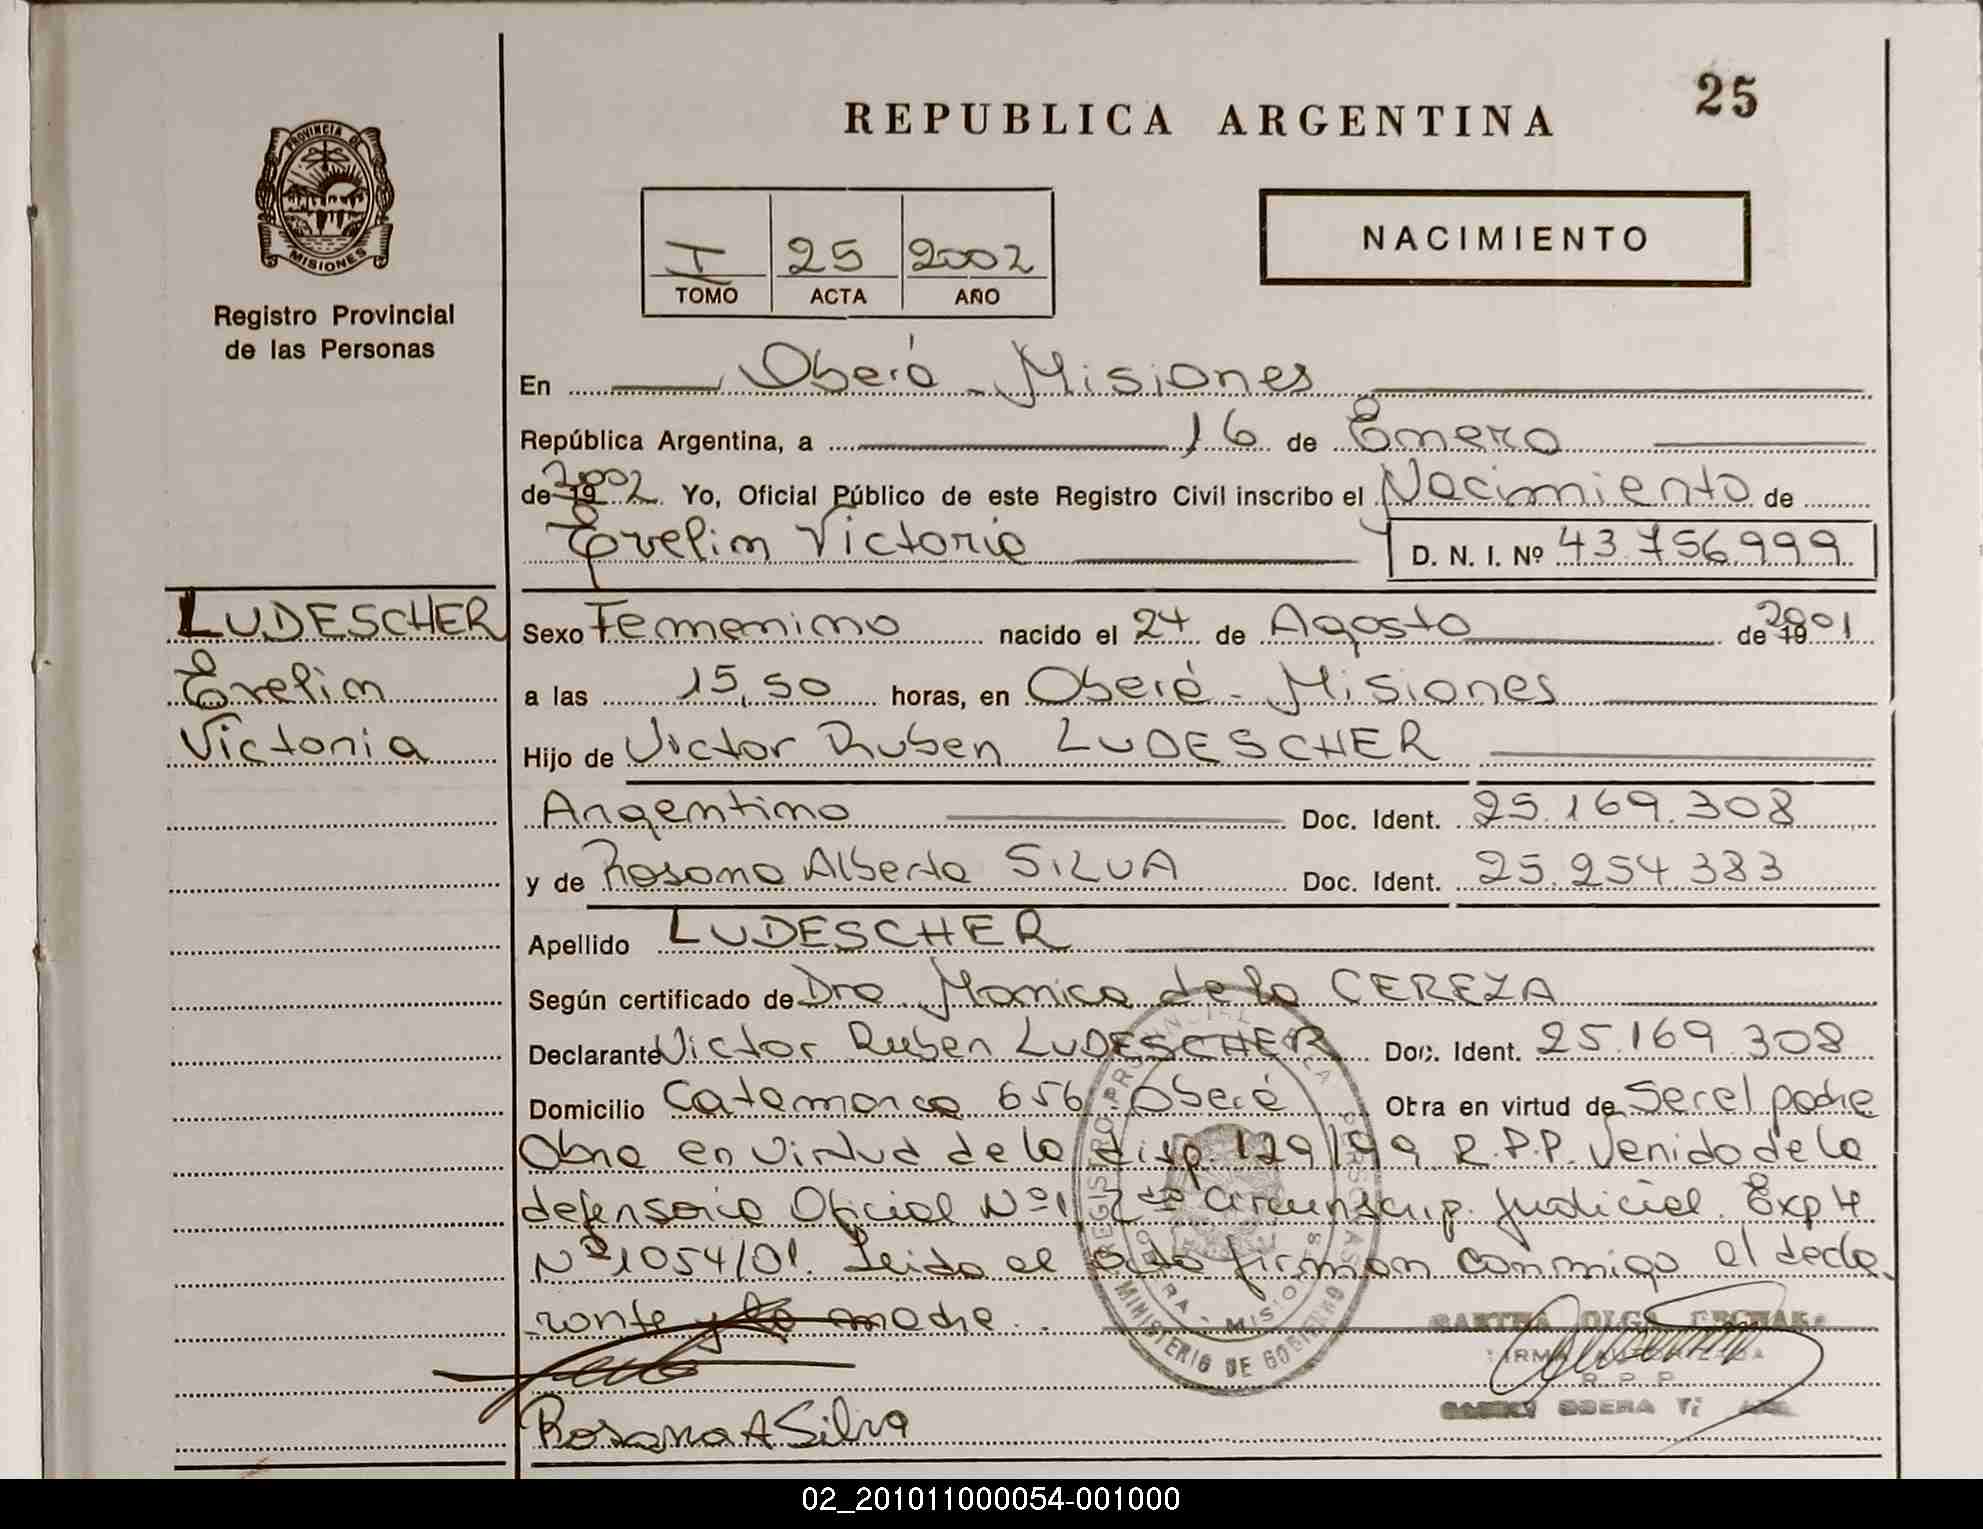 25
REPUBLICA ARGENTINA
PROVINCIA DE
MISIONES
NACIMIENTO
I 25 2002
TOMO ACTA AÑO
Registro Provincial
de las Personas
En Oberá - Misiones
República Argentina, a 16 de Enero
de 19 2002. Yo, Oficial Público de este Registro Civil inscribo el Nacimiento de
Evelin Victoria D. N. I. Nº 43.756.999
LUDESCHER
Evelin
Victoria
Sexo Femenino nacido el 24 de Agosto de 19 2001
a las 15,50 horas, en Oberá - Misiones
Hijo de Victor Ruben LUDESCHER
Argentino Doc. Ident. 25.169.308
y de Rosana Alberta SILVA Doc. Ident. 25.254.383
Apellido LUDESCHER
Según certificado de Dra. Monica de la CEREZA
Declarante Victor Ruben LUDESCHER Doc. Ident. 25.169.308
Domicilio Catamarca 656 Oberá Obra en virtud de Ser el padre
Obra en virtud de la disp. 129/99 R.P.P. Venido de la
defensoria Oficial Nº1 2da Circunscrip. Judicial. Expte
Nº 1054/01. Leida el acta firman conmigo el decla
rante y la madre.
REGISTRO PROVINCIAL DE LAS PERSONAS
OBERA - MISIONES
MINISTERIO DE GOBIERNO
OLGA
R. P. P.
OBERA
Rosana A Silva
02_201011000054-001000